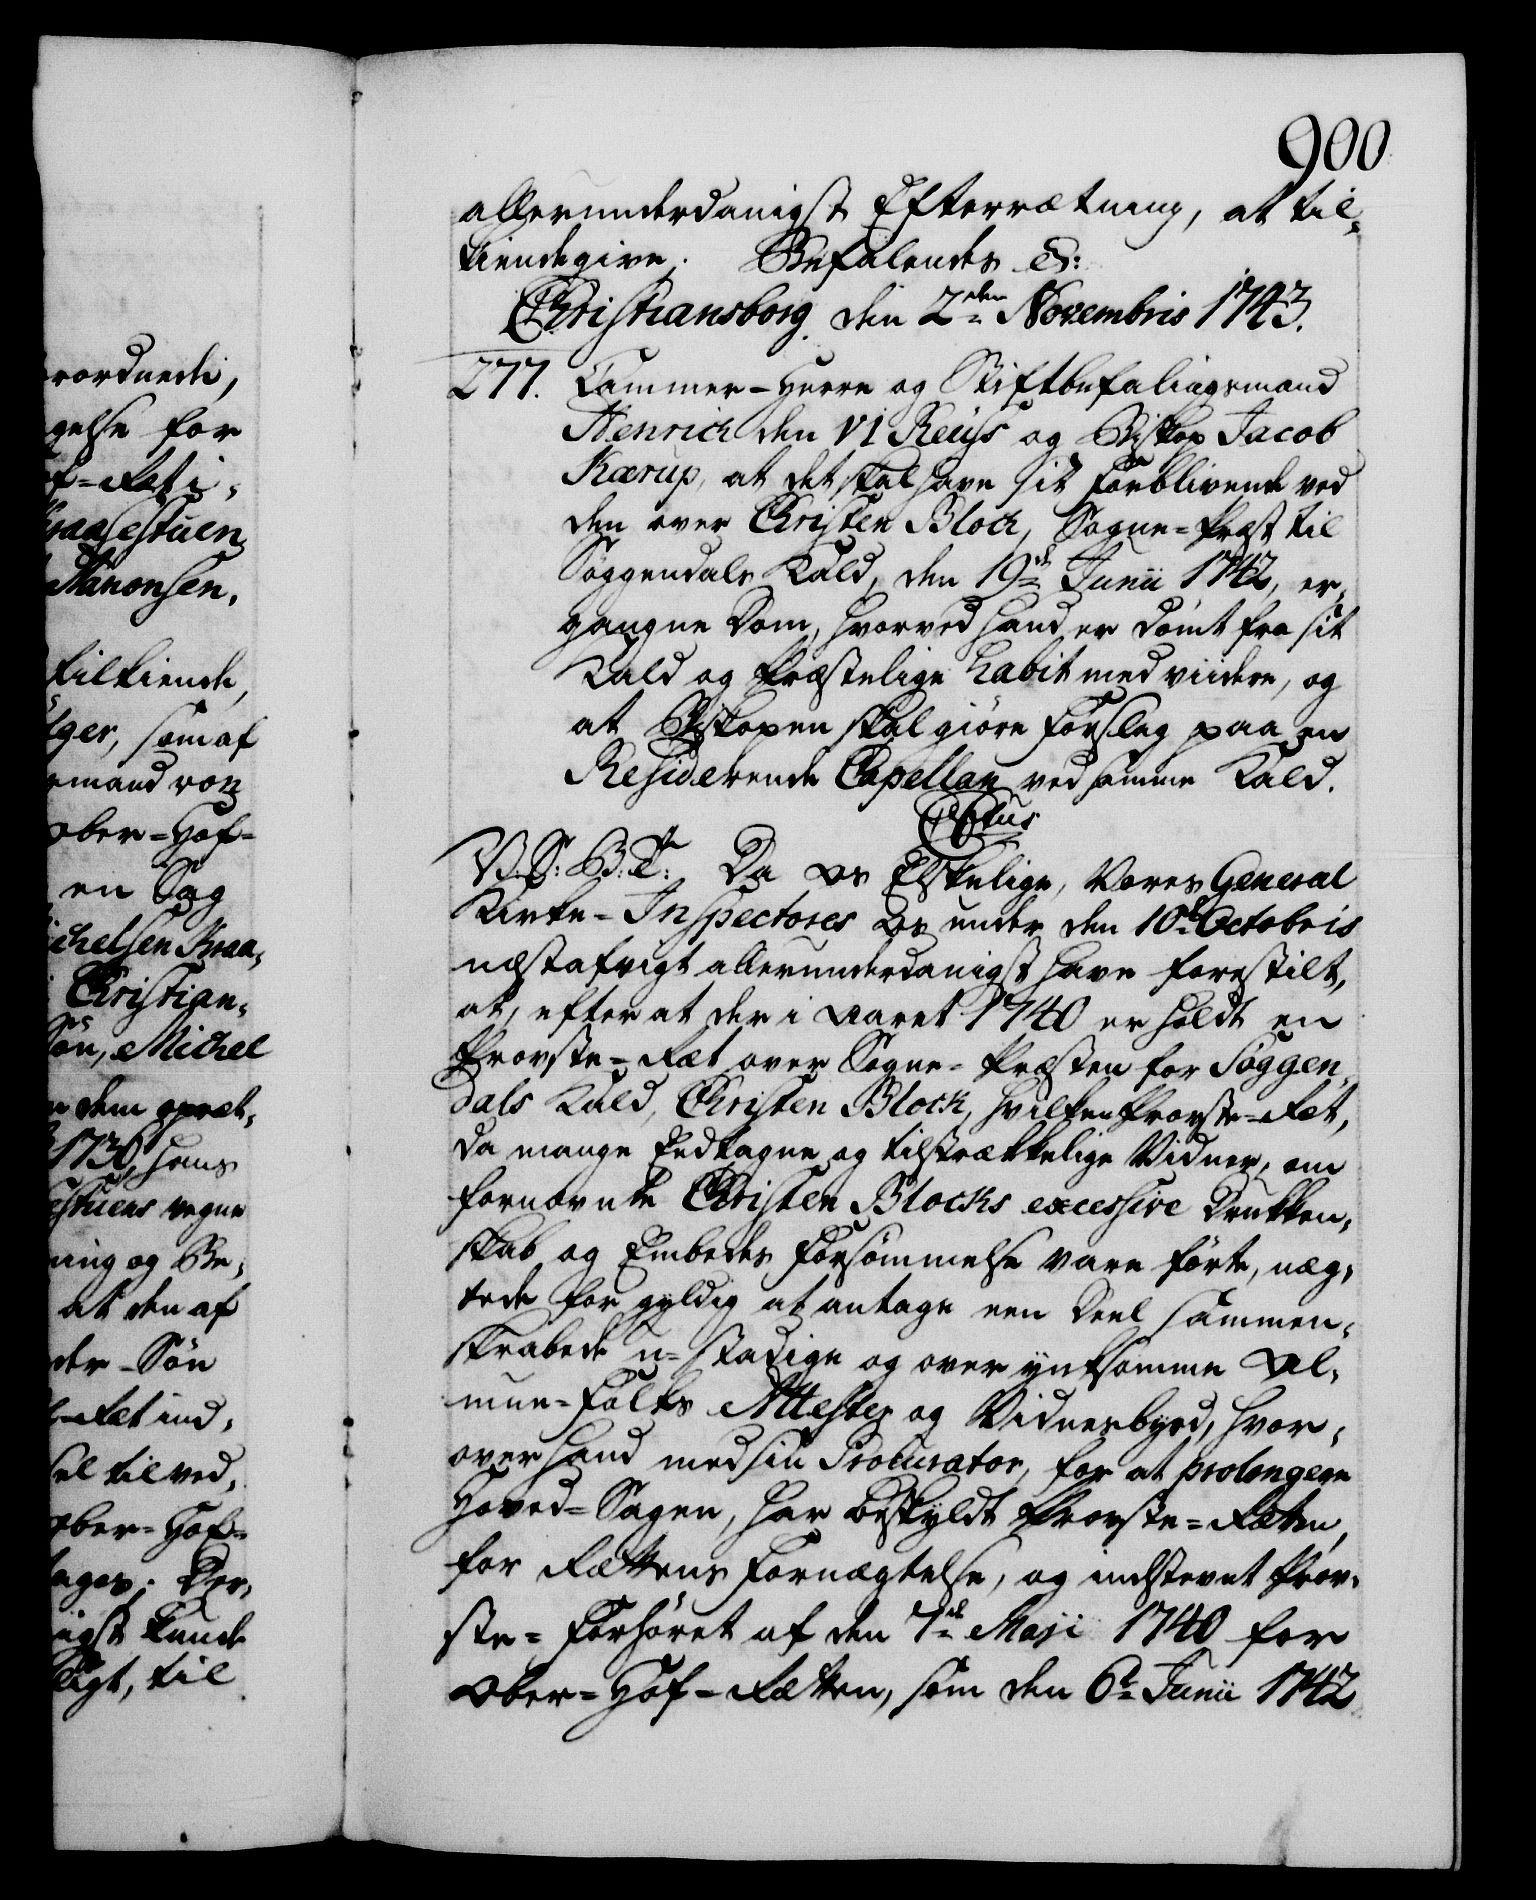 900
allerunderdanigst Efterrætning, at til¬
kiendegive. Befalendes &:
Christiansborg den 2den Novembris 1743.
277. Cammer-Herre og Stiftbefalingsmand
Henrich den VI Reüss og Biskop Jacob
Kærup, at det skal have sit Forblivende ved
den over Christen Block, Sogne-Præst til
Soggendals Kald, den 19de Junii 1742, er¬
gangne Dom, hvorved hand er dömt fra sit
Kald og Præstelige habit med viidere, og
at Biskopen skal giöre Forslag paa en
Residerende Capellan ved samme Kald.
V.S: B.T: Da os Elskelige, Vores General
Kirke-Inspectores Os under den 10de Octobris
næstafvigt allerunderdanigst have forestilt,
at, efter at der i Aaret 1740 er holdt en
Provste-Ræt over Sogne-Præsten for Soggen¬
dals Kald, Christen Block, hvilken Provste-Ræt,
da mange Eedtagne og tilstrækkelige Vidner, om
fornævnte Christen Blocks excessive Drukken¬
skab og Embeds Forsömmelse vare förte, næg¬
tede for gyldig at antage een Deel sammen¬
skrabede u-stadige og over ynksomme Al¬
mue-Folks Attester og Vidnesbyrd, hvor¬
over hand med sin Procurator, for at prolongere
Hoved-Sagen, har beskyldt Provste-Retten,
for Rættens Fornægtelse, og indstevnt Prov¬
ste-Forhöret af den 7de Maji 1740 for
Ober-Hof-Rætten, som den 6te Junii 1742
rordnede,
gelse for
f-Ræt i¬
raaestuen
Manonsen,
tilkiende,
lger, som af
emand von
Ober-Hof-
en Sag
ichelsen Kraa¬
Christian¬
Sön, Michel
n dem opræt¬
1736, hans
estuens vegne
ning og Be¬
at den af
der-Sön
-Ræt ind¬
sel til ved¬
Ober-Hof-
tages. Der¬
igst kunde
ligt, til